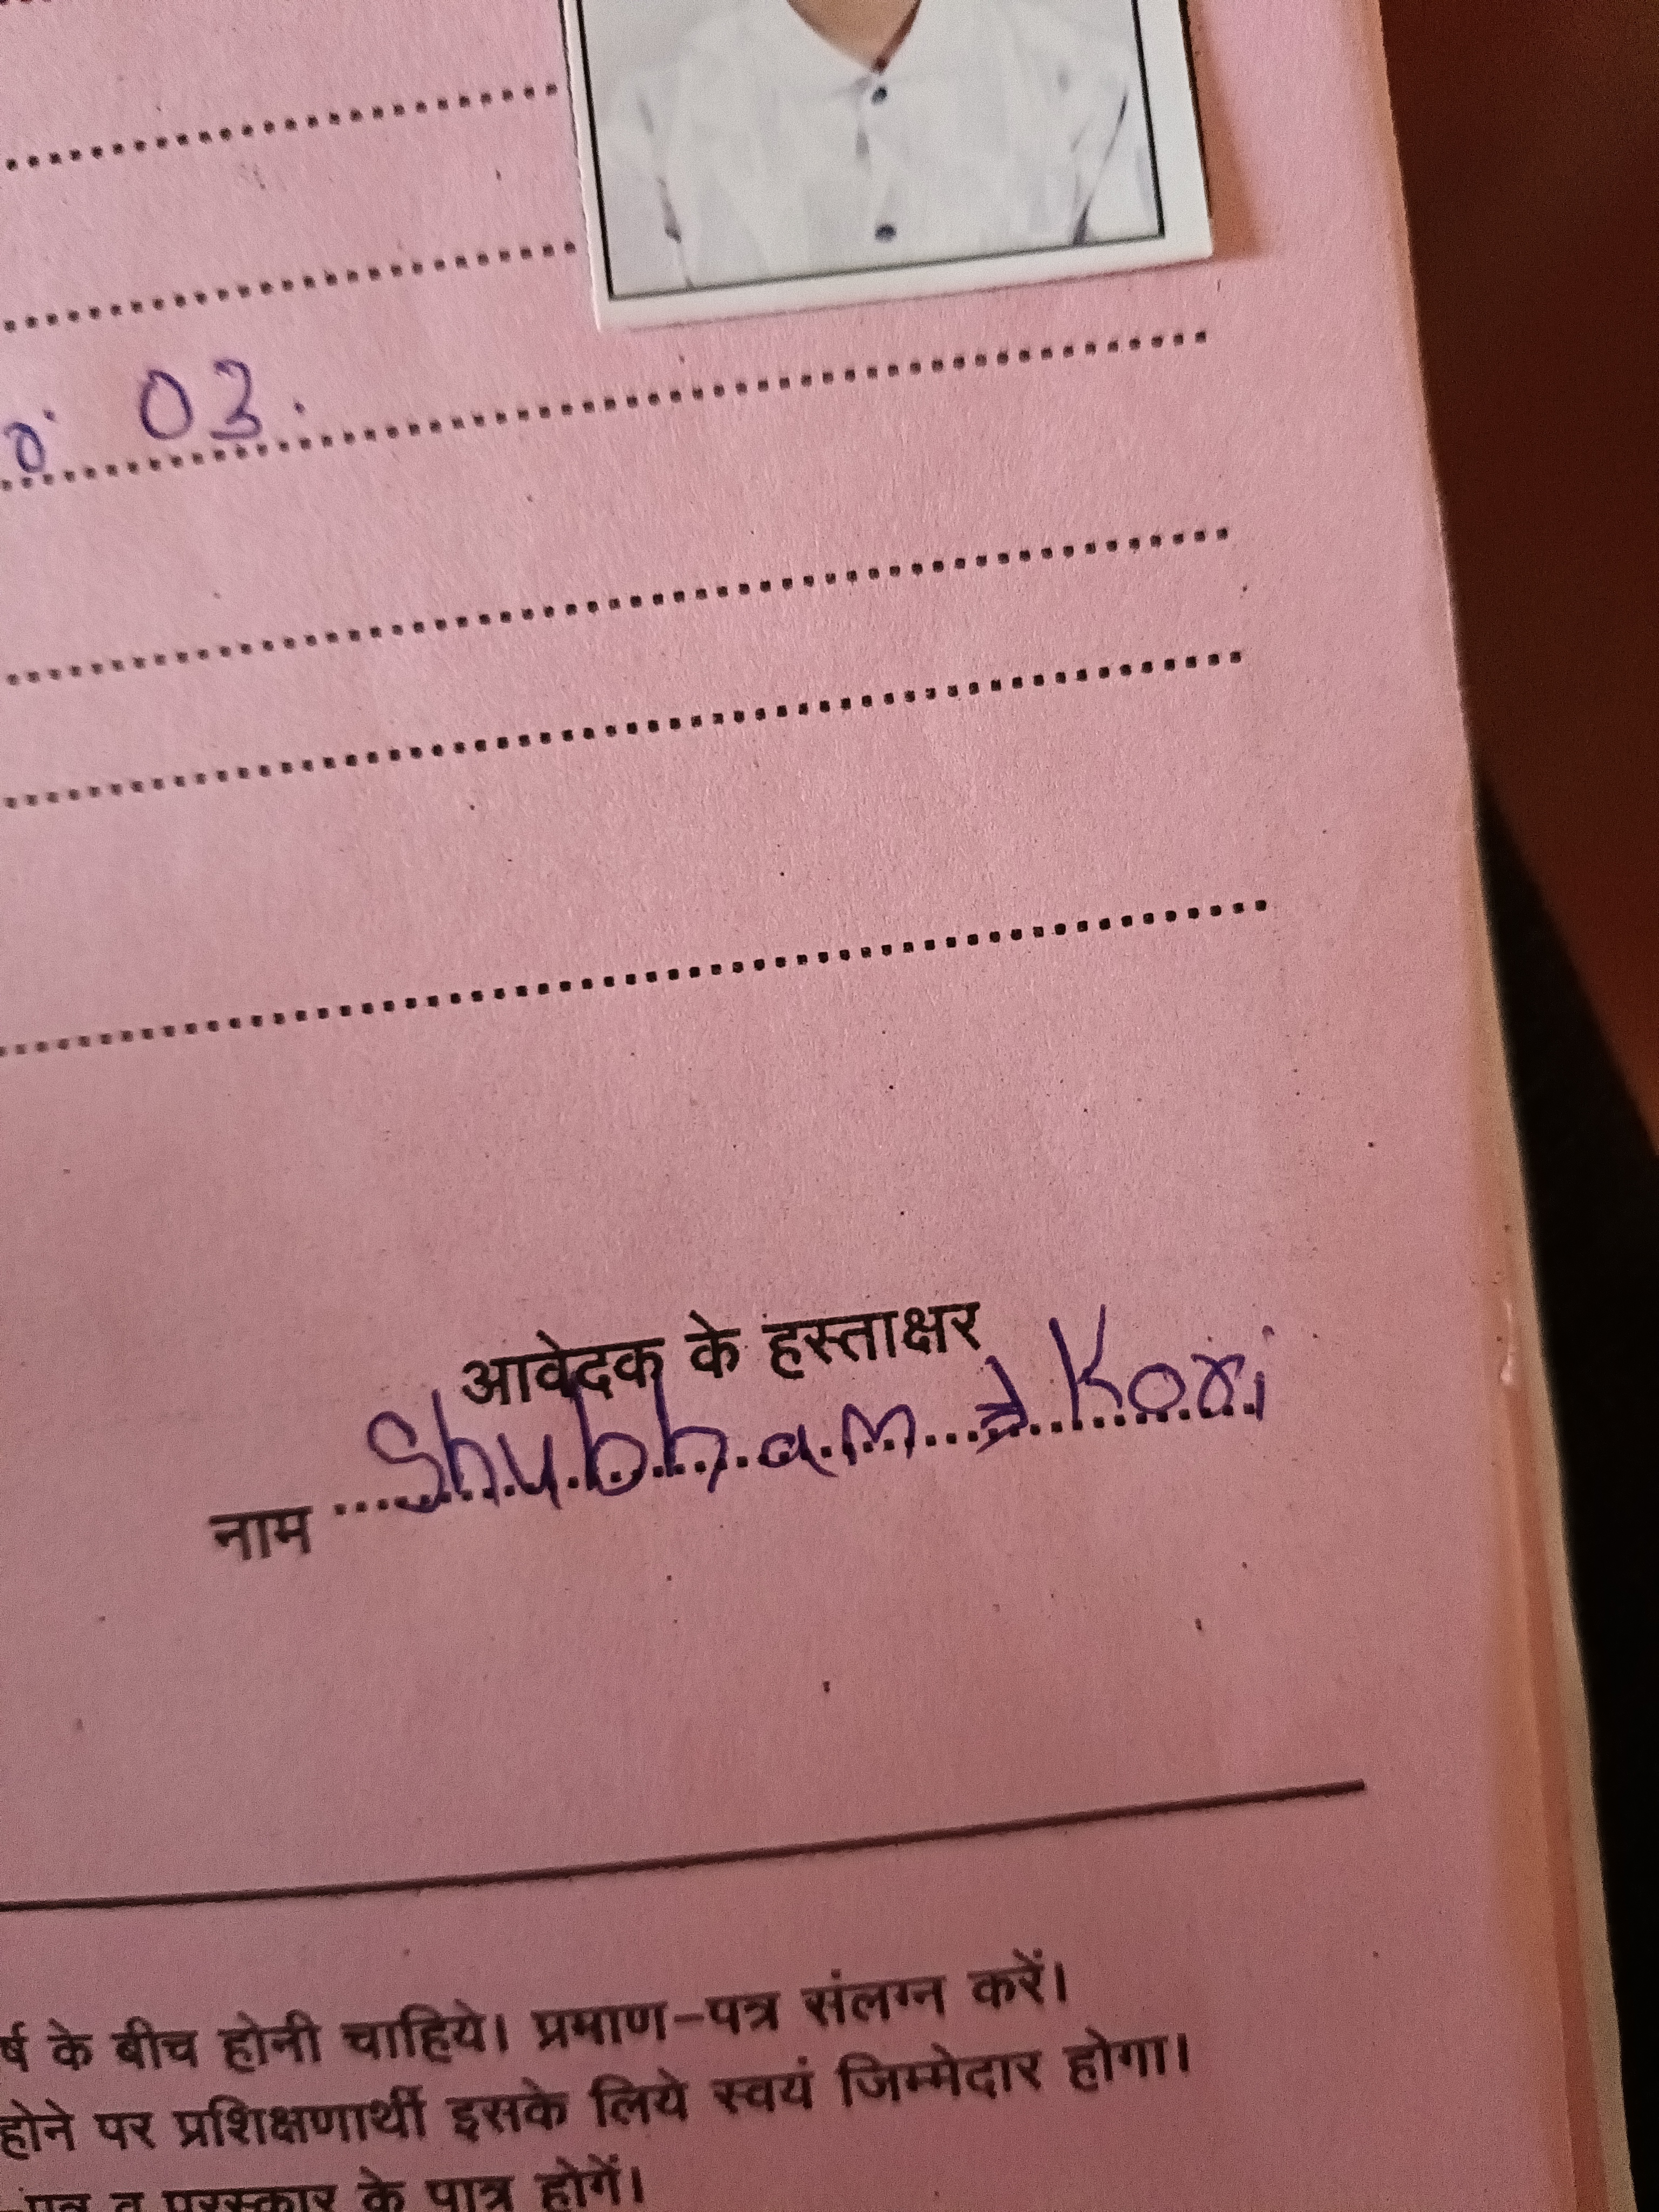 03.
आवेदक के हस्ताक्षर
नाम Shubham Kori
र्ष के बीच होनी चाहिये। प्रमाण-पत्र संलग्न करें।
होने पर प्रशिक्षणार्थी इसके लिये स्वयं जिम्मेदार होगा।
व पुरस्कार के पात्र होगें।